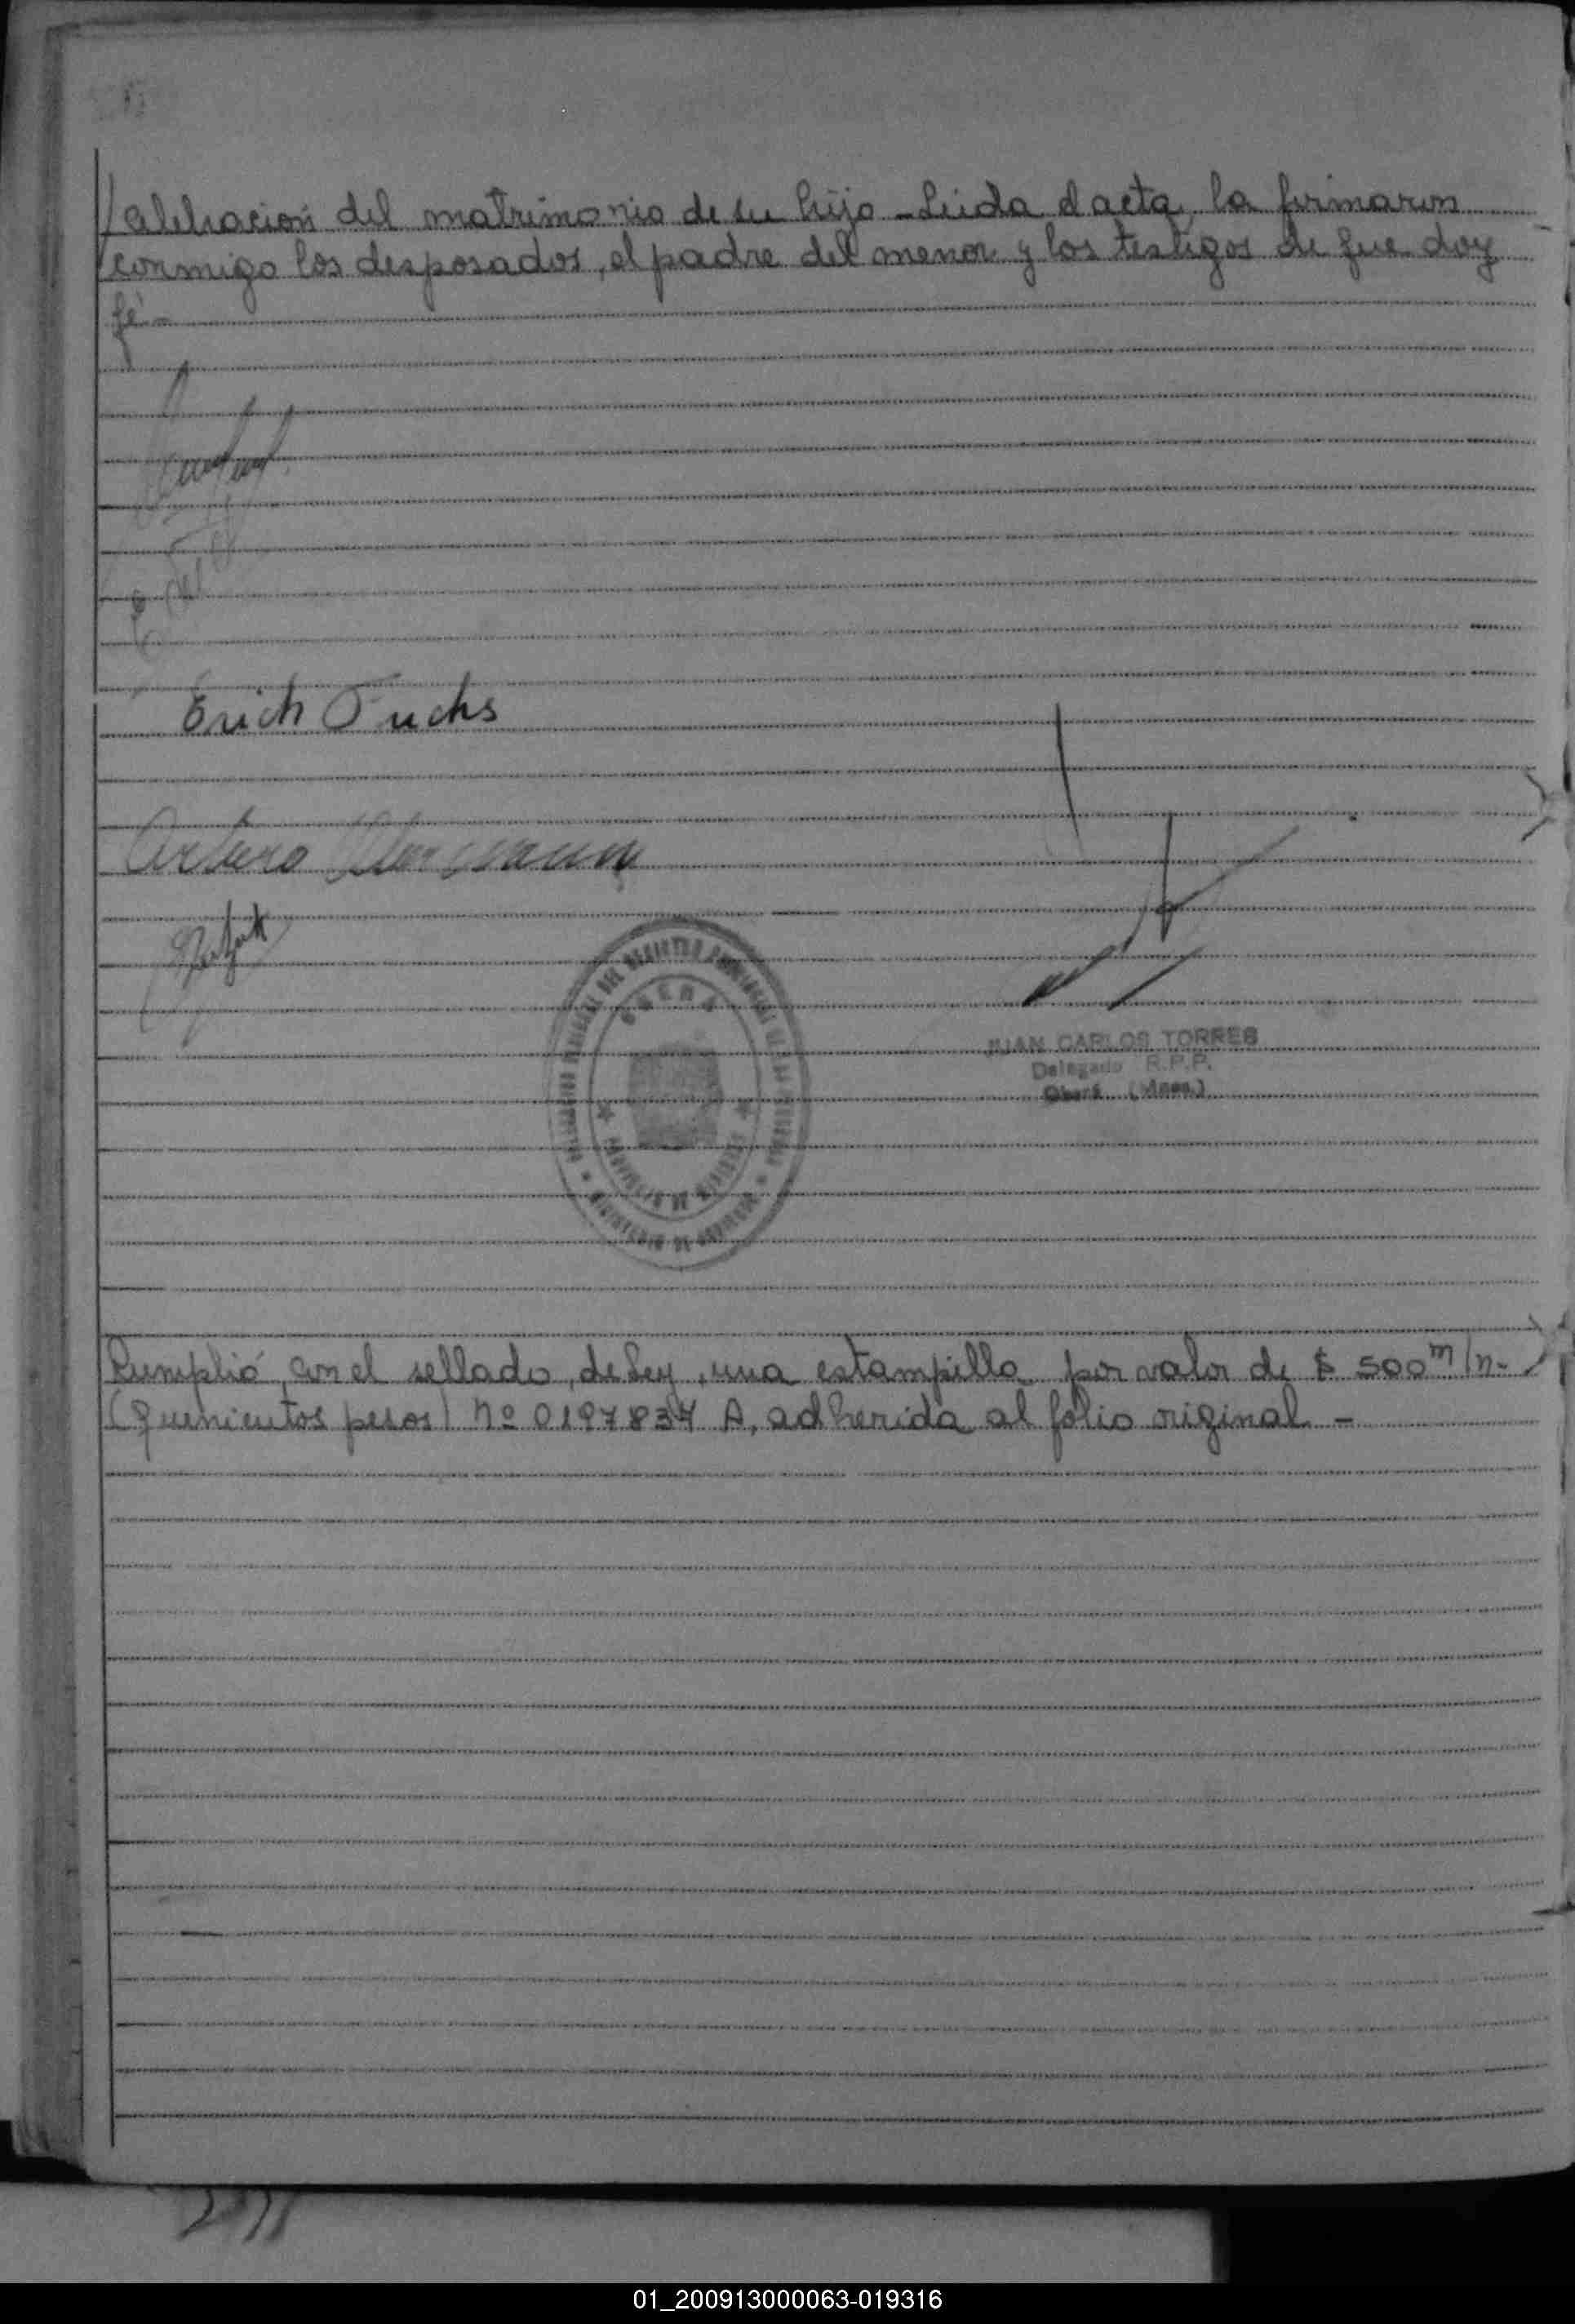 /celebración del matrimonio de su hijo - Leída el acta, la firmaron
conmigo los desposados, el padre del menor y los testigos de que doy
fé -
Erich Fuchs
Arturo
OBERA
PROVINCIA DE MISIONES
MINISTERIO DE GOBIERNO
JUAN CARLOS TORRES
Delegado R.P.P.
Oberá (Mnes.)
Cumplió con el sellado de Ley, una estampilla por valor de $ 500 m/n.-
(quinientos pesos) Nº 0197834 A, adherida al folio original -
01_200913000063-019316